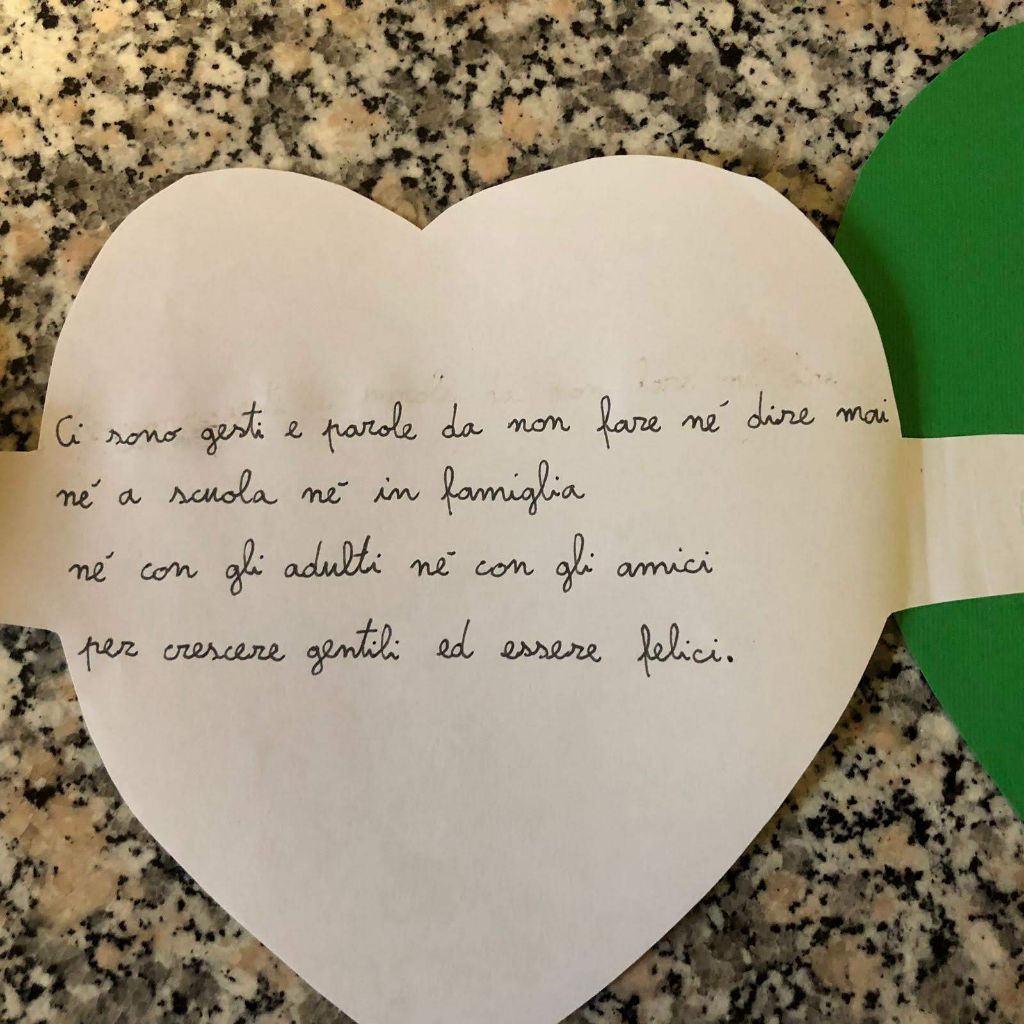 Ci sono gesti e parole da non fare né dire mai
né a scuola né in famiglia
né con gli adulti né con gli amici
per crescere gentili ed essere felici.